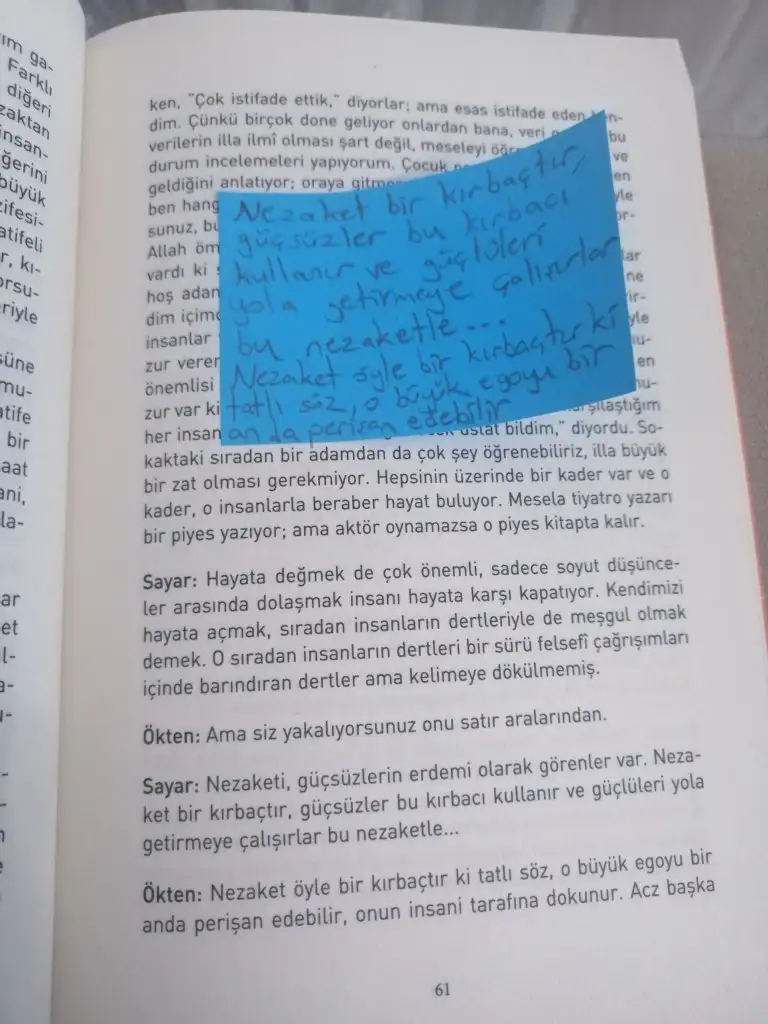 ım ga-
Farklı
diğeri
zaktan
insan-
ğerini
büyük
ifesi-
atifeli
r, kı-
orsu-
riyle
süne
mu-
atife
bir
aat
ani,
la-
ar
et
l-
a-
ken, "Çok istifade ettik," diyorlar; ama esas istifade eden ben-
dim. Çünkü birçok done geliyor onlardan bana, veri bu
verilerin illa ilmî olması şart değil, meseleyi ve
durum incelemeleri yapıyorum. Çocuk en
geldiğini anlatıyor; oraya yle
ben hang or-
sunuz, bu
Allah öm lar
vardı ki ne
hoş adan ir-
dim içim yle
insanlar nu-
zur verer en
önemlisi nu-
zur var ki arşılaştığım
her insan üstat bildim," diyordu. So-
kaktaki sıradan bir adamdan da çok şey öğrenebiliriz, illa büyük
bir zat olması gerekmiyor. Hepsinin üzerinde bir kader var ve o
kader, o insanlarla beraber hayat buluyor. Mesela tiyatro yazarı
bir piyes yazıyor; ama aktör oynamazsa o piyes kitapta kalır.
Nezaket bir kırbaçtır,
güçsüzler bu kırbacı
kullanır ve güçlüleri
yola getirmeye çalışırlar
bu nezaketle...
Nezaket öyle bir kırbaçtır ki
tatlı söz, o büyük egoyu bir
anda perişan edebilir
Sayar: Hayata değmek de çok önemli, sadece soyut düşünce-
ler arasında dolaşmak insanı hayata karşı kapatıyor. Kendimizi
hayata açmak, sıradan insanların dertleriyle de meşgul olmak
demek. O sıradan insanların dertleri bir sürü felsefî çağrışımları
içinde barındıran dertler ama kelimeye dökülmemiş.
Ökten: Ama siz yakalıyorsunuz onu satır aralarından.
Sayar: Nezaketi, güçsüzlerin erdemi olarak görenler var. Neza-
ket bir kırbaçtır, güçsüzler bu kırbacı kullanır ve güçlüleri yola
getirmeye çalışırlar bu nezaketle...
Ökten: Nezaket öyle bir kırbaçtır ki tatlı söz, o büyük egoyu bir
anda perişan edebilir, onun insani tarafına dokunur. Acz başka
61